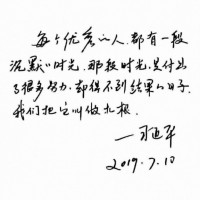 每个优秀的人,都有一段
沉默的时光.那段时光,是付出
了很多努力,却得不到结果的日子,
我们把它叫做扎根.
2019.7.10